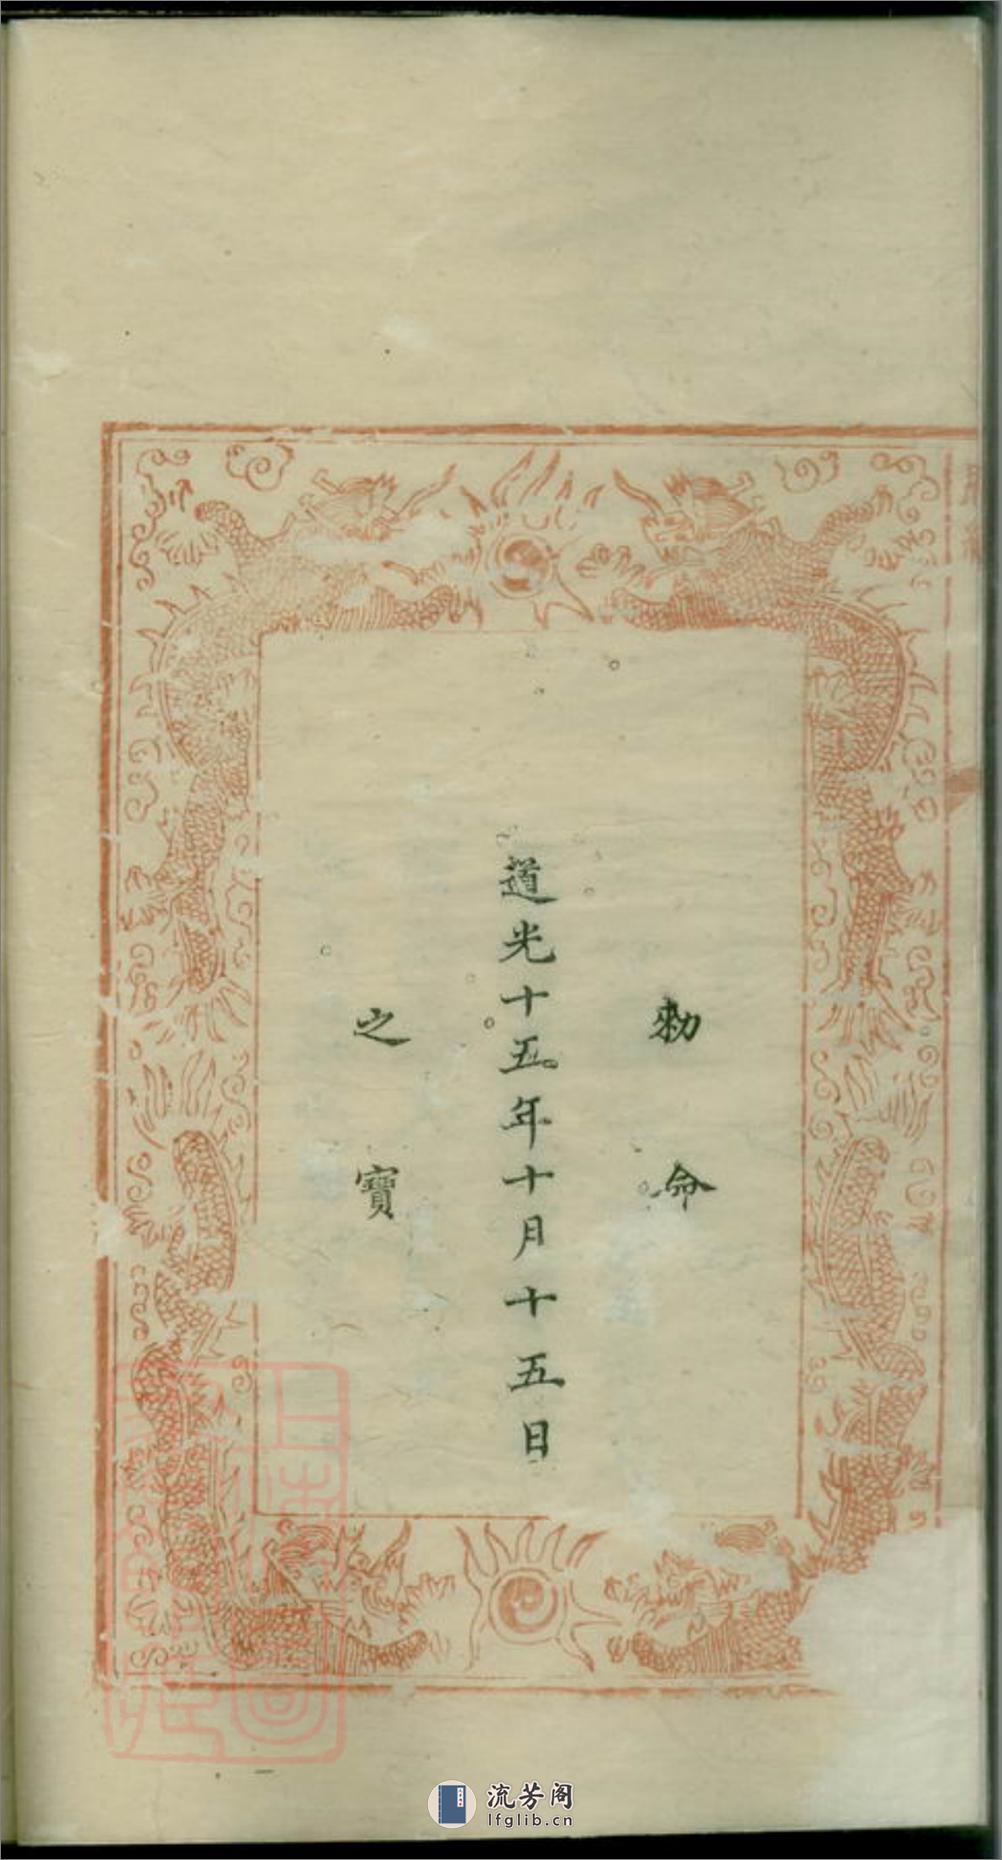 勅命
道光十五年十月十五日
之寶
流芳阁
lfglib.cn